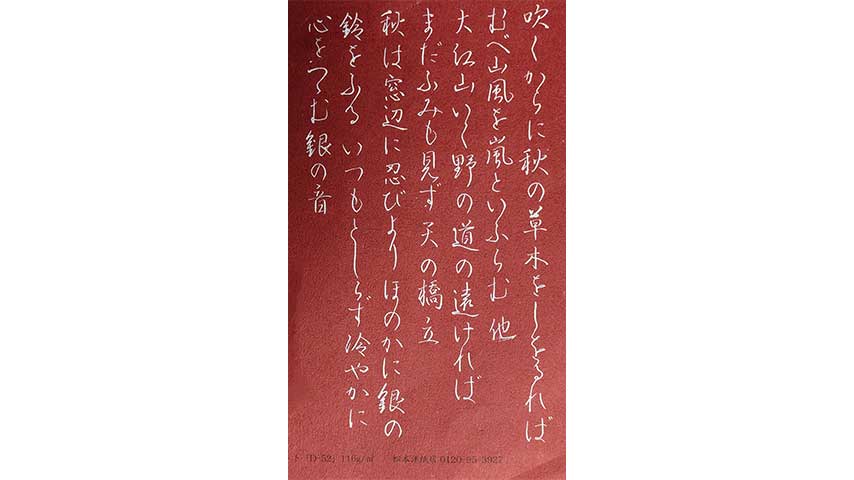 吹くからに秋の草木をしをるれば
むべ山風を嵐といふらむ 他
大江山いく野の道の遠ければ
まだふみも見ず天の橋立
秋は窓辺に忍びより ほのかに銀の
鈴をふる いつもとしらず冷やかに
心をつつむ銀の音
ト「D-52」116g/㎡ 松本洋紙店 0120-95-3927